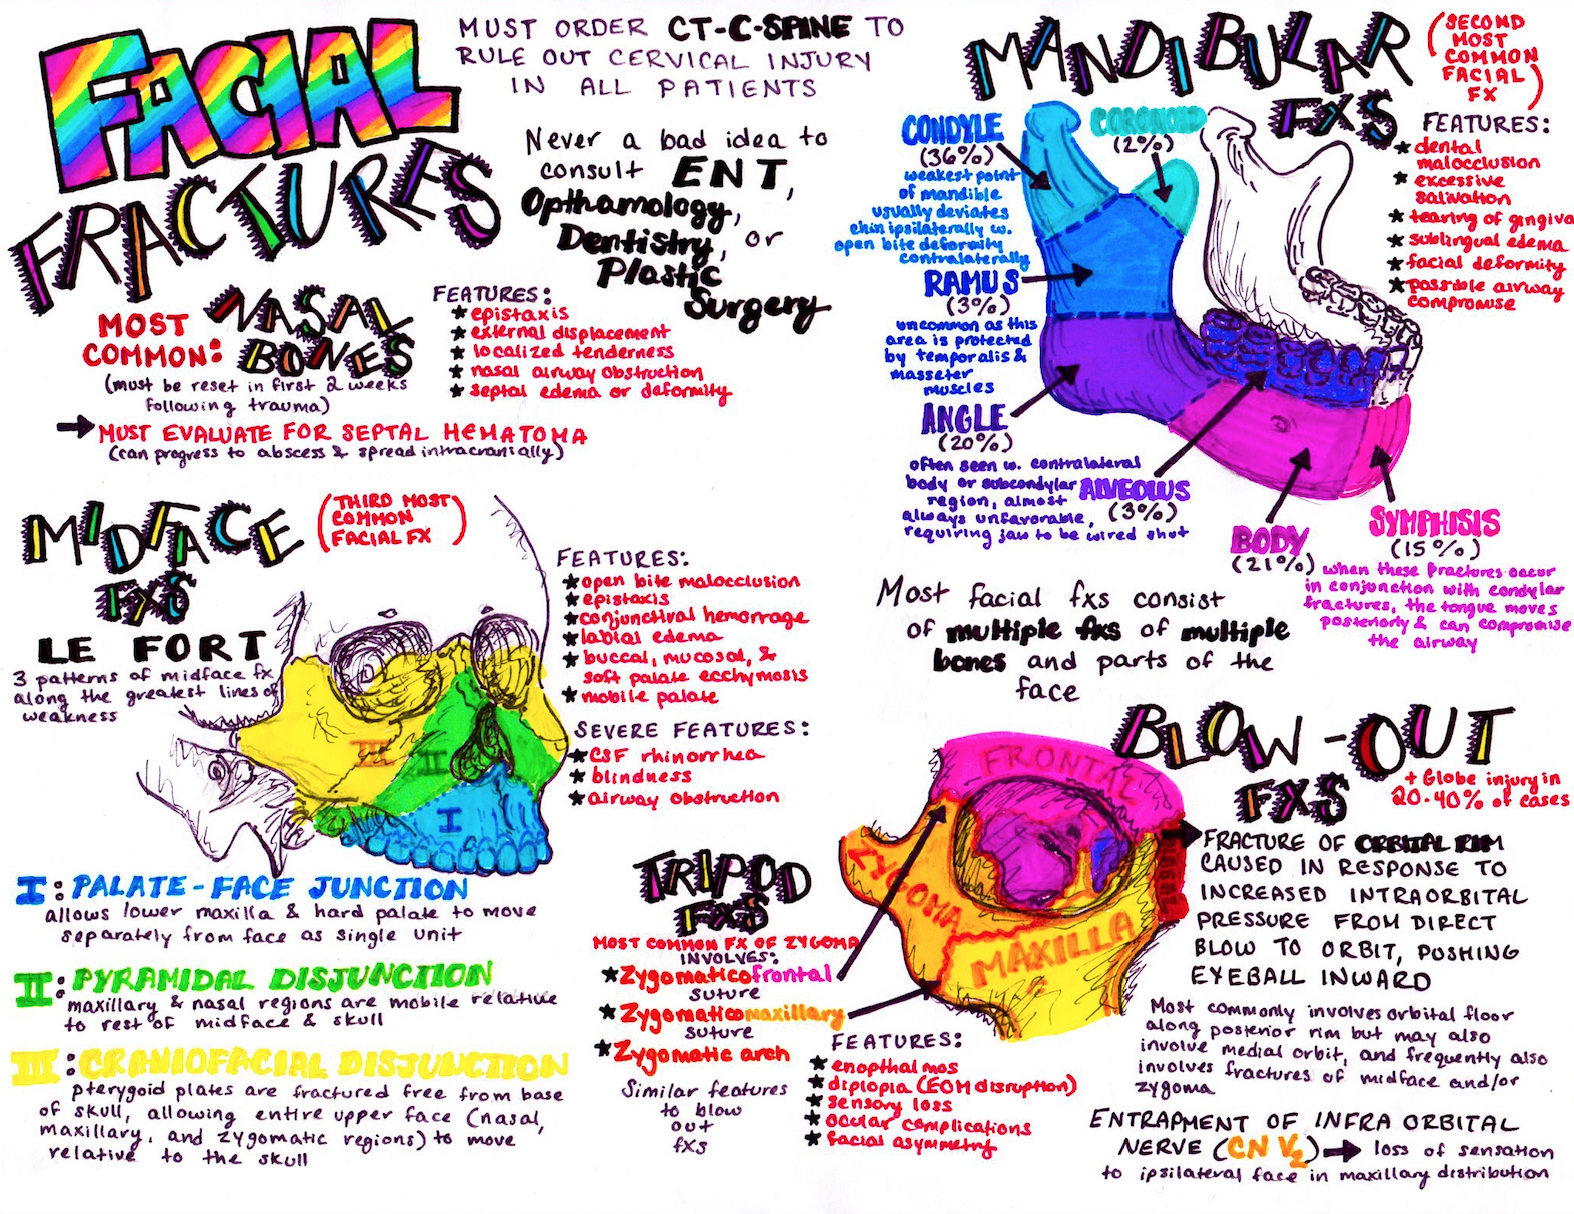 FACIAL
FRACTURES
MUST ORDER CT-C-SPINE TO
RULE OUT CERVICAL INJURY
IN ALL PATIENTS
Never a bad idea to
consult ENT,
Opthamology,
Dentistry, or
Plastic
Surgery
MOST
COMMON:
NASAL
BONES
(must be reset in first 2 weeks
following trauma)
→ MUST EVALUATE FOR SEPTAL HEMATOMA
(can progress to abscess & spread intracranially)
FEATURES:
★ epistaxis
★ external displacement
★ localized tenderness
★ nasal airway obstruction
★ septal edema or deformity
MANDIBULAR
FXS
(SECOND
MOST
COMMON
FACIAL
FX)
FEATURES:
★ dental
malocclusion
★ excessive
salivation
★ tearing of gingiva
★ sublingual edema
★ facial deformity
★ possible airway
compromise
CONDYLE
(36%)
weakest point
of mandible
usually deviates
chin ipsilaterally w.
open bite deformity
contralaterally
CORONOID
(2%)
RAMUS
(3%)
uncommon as this
area is protected
by temporalis &
masseter
muscles
ANGLE
(20%)
often seen w. contralateral
body or subcondylar
region, almost
always unfavorable,
requiring jaw to be wired shut
ALVEOLUS
(3%)
BODY
(21%)
SYMPHISIS
(15%)
when these fractures occur
in conjunction with condylar
fractures, the tongue moves
posteriorly & can compromise
the airway
Most facial fxs consist
of multiple fxs of multiple
bones and parts of the
face
MIDFACE
FXS
(THIRD MOST
COMMON
FACIAL FX)
LE FORT
3 patterns of midface fx
along the greatest lines of
weakness
III
II
I
FEATURES:
★ open bite malocclusion
★ epistaxis
★ conjunctival hemorrhage
★ labial edema
★ buccal, mucosal, &
soft palate ecchymosis
★ mobile palate
SEVERE FEATURES:
★ CSF rhinorrhea
★ blindness
★ airway obstruction
I: PALATE-FACE JUNCTION
allows lower maxilla & hard palate to move
separately from face as single unit
II: PYRAMIDAL DISJUNCTION
maxillary & nasal regions are mobile relative
to rest of midface & skull
III: CRANIOFACIAL DISJUNCTION
pterygoid plates are fractured free from base
of skull, allowing entire upper face (nasal,
maxillary, and zygomatic regions) to move
relative to the skull
TRIPOD
FXS
MOST COMMON FX OF ZYGOMA
INVOLVES:
★ Zygomaticofrontal
suture
★ Zygomaticomaxillary
suture
★ Zygomatic arch
Similar features
to blow
out
fxs
FRONTAL
ZYGOMA
MAXILLA
NASAL
FEATURES:
★ enopthalmos
★ diplopia (EOM disruption)
★ sensory loss
★ ocular complications
★ facial asymmetry
BLOW-OUT
FXS
+ Globe injury in
20-40% of cases
FRACTURE OF ORBITAL RIM
CAUSED IN RESPONSE TO
INCREASED INTRAORBITAL
PRESSURE FROM DIRECT
BLOW TO ORBIT, PUSHING
EYEBALL INWARD
Most commonly involves orbital floor
along posterior rim but may also
involve medial orbit, and frequently also
involves fractures of midface and/or
zygoma
ENTRAPMENT OF INFRA ORBITAL
NERVE (CN V2) → loss of sensation
to ipsilateral face in maxillary distribution